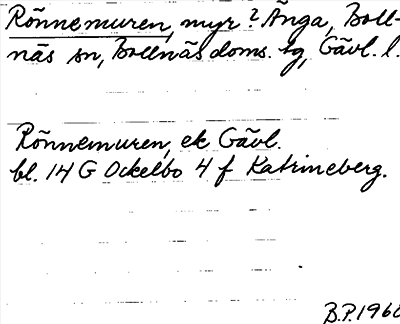 Rönnemuren, myr? Änga, Boll-
näs sn, Bollnäs doms. tg, Gävl. l.
Rönnemuren, ek Gävl.
bl. 14 G Ockelbo 4 f Katrineberg.
B.P. 1960